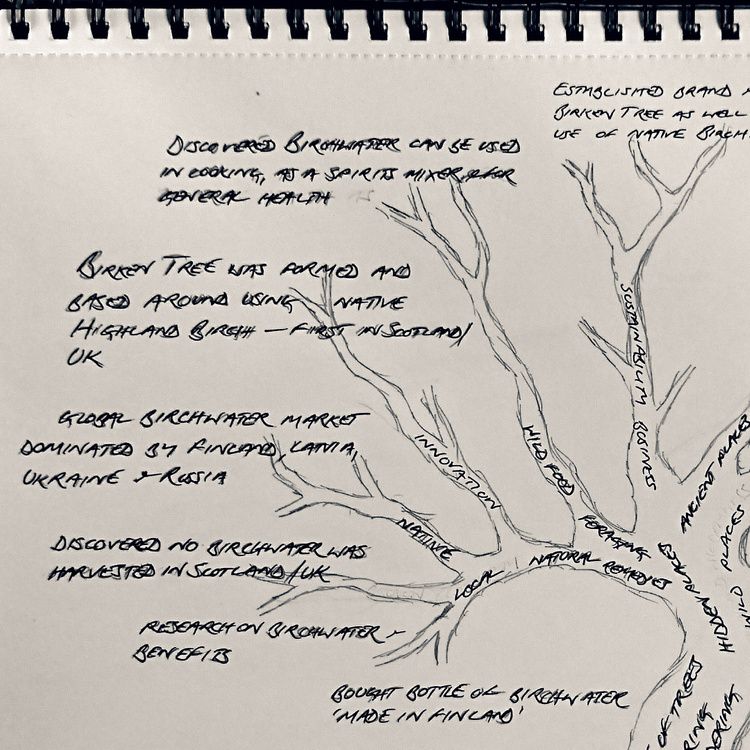 ESTABLISHED BRAND
BIRKEN TREE AS WELL
USE OF NATIVE BIRCH
DISCOVERED BIRCHWATER CAN BE USED
IN COOKING, AS A SPIRITS MIXER & FOR
GENERAL HEALTH
BIRKEN TREE WAS FORMED AND
BASED AROUND USING NATIVE
HIGHLAND BIRCH – FIRST IN SCOTLAND/
UK
GLOBAL BIRCHWATER MARKET
DOMINATED BY FINLAND, LATVIA,
UKRAINE & RUSSIA
DISCOVERED NO BIRCHWATER WAS
HARVESTED IN SCOTLAND/UK
RESEARCH ON BIRCHWATER –
BENEFITS
BOUGHT BOTTLE OF BIRCHWATER
'MADE IN FINLAND'
SUSTAINABILITY BUSINESS
WILD FOOD
INNOVATION
NATIVE
FORAGING
LOCAL NATURAL REMEDIES
ANCIENT PLACES
HIDDEN PLACES
WILD PLACES
OF TREES